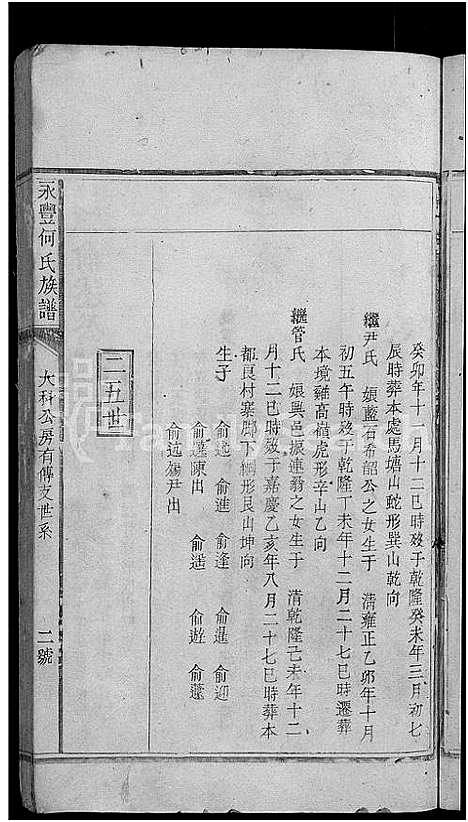 癸卯年十一月十二巳時歿于乾隆癸未年三月初七
辰時葬本處馬塘山蛇形巽山乾向
繼尹氏 娘藍石希韶公之女生于 清雍正乙卯年十月
初五午時歿于乾隆丁未年十二月二十七巳時遷葬
本境雞高嶺虎形辛山乙向
繼管氏 娘興邑振連翁之女生于 清乾隆己未年十二
月十二巳時歿于嘉慶乙亥年八月二十七巳時葬本
都良村寨廊下側形艮山坤向
生子 俞 俞進 俞逢 俞暹 俞迎
俞 陳出 俞遥 俞遊 俞
俞 尹出
二五世
永豐何氏族譜
大科公房有傳支世系
二號